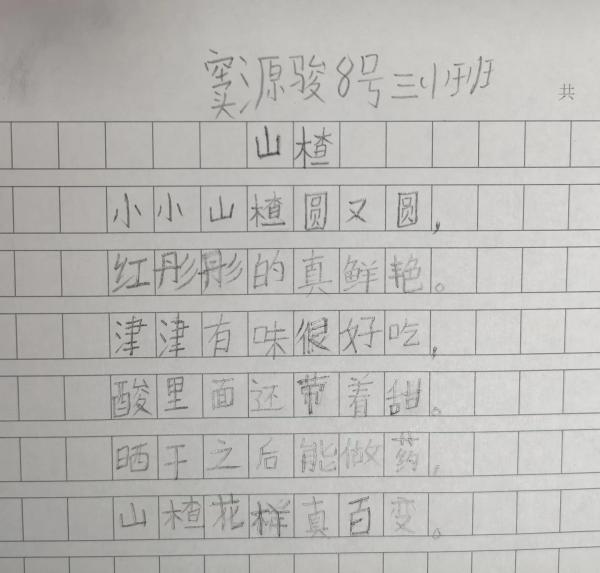 窦源骏8号三小班
共
山楂
小小山楂圆又圆，
红彤彤的真鲜艳。
津津有味很好吃，
酸里面还带着甜。
晒干之后能做药，
山楂花样真百变。